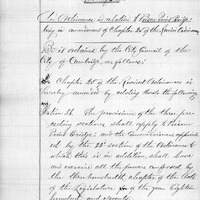 An Ordinance in relation to Prison Point Bridge,
being in amendment of Chapter 25 of the Revised Ordinances
Be it ordained by the City Council of the
City of Cambridge, as follows:
Chapter 25 of the Revised Ordinances is
hereby amended by adding thereto the following
Section 36. The provisions of the three pre-
ceding sections shall apply to Prison
Point Bridge; and the Commissioners appoint-
ed by the 33 section of the Ordinance to
which this is in addition shall have
and exercise all the powers conferred by
the three hundredth chapter of the Acts
of the Legislature for the year Eighteen
hundred and seventy